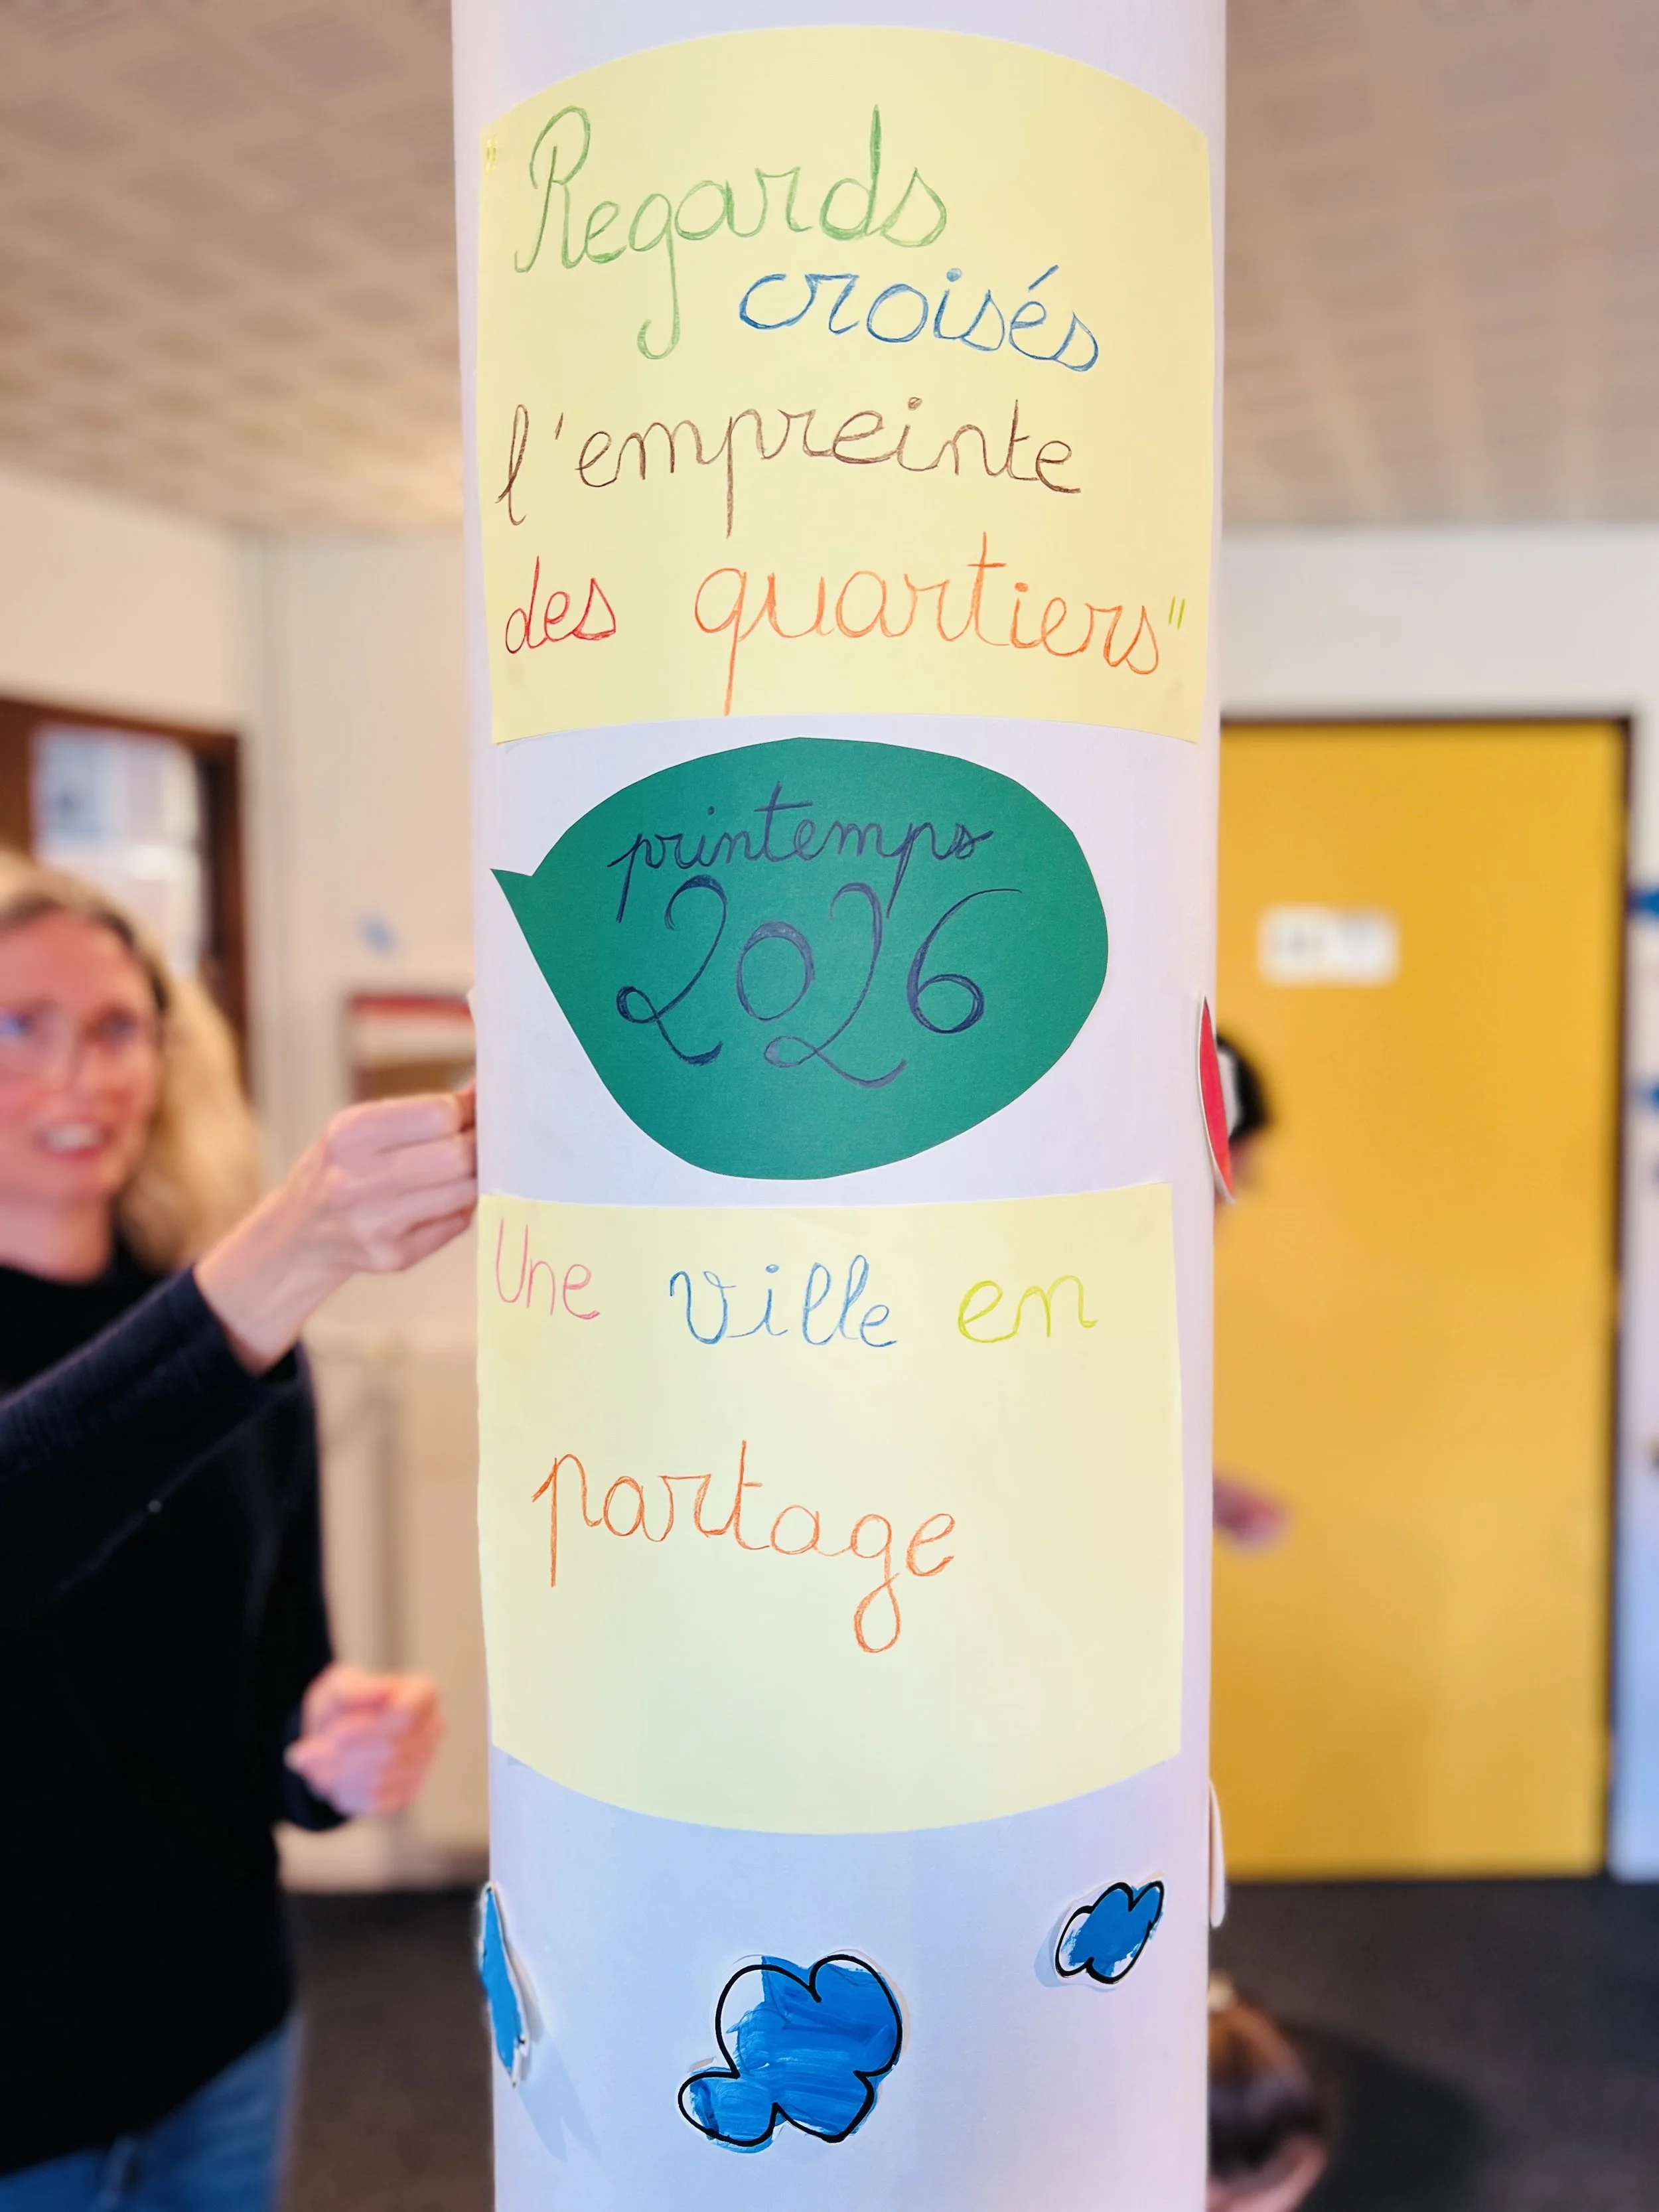 "Regards
croisés
l'empreinte
des quartiers"
printemps
2026
Une ville en
partage